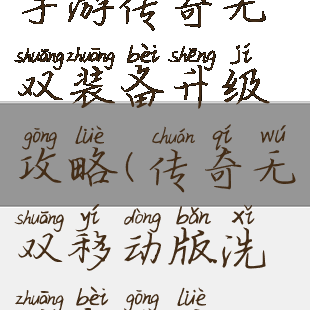 手游传奇无
shuāng zhuāng bèi shēng jí
双装备升级
gōng lüè chuán qí wú
攻略(传奇无
shuāng yí dòng bǎn xǐ
双移动版洗
zhuāng bèi gōng lüè